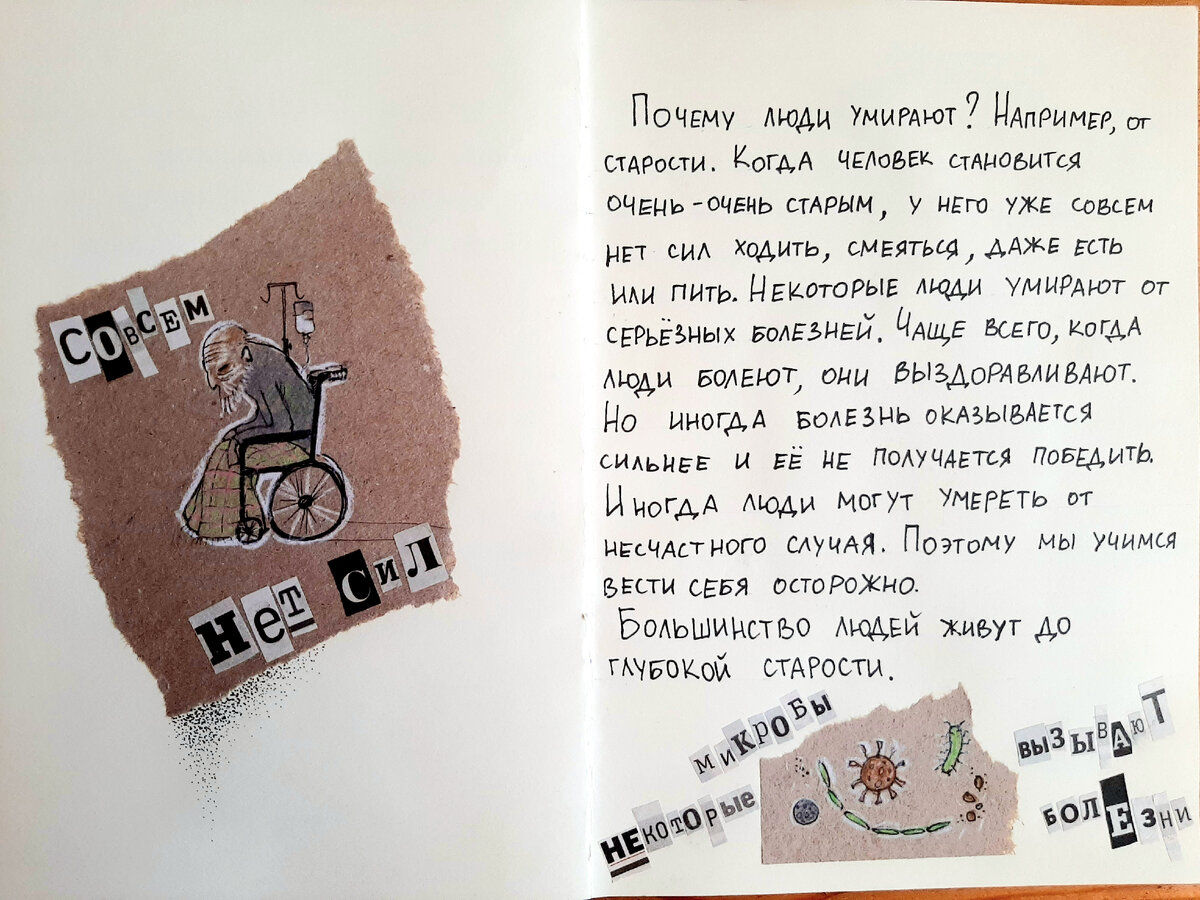 Совсем
нет сил
Почему люди умирают? Например, от
старости. Когда человек становится
очень-очень старым, у него уже совсем
нет сил ходить, смеяться, даже есть
или пить. Некоторые люди умирают от
серьёзных болезней. Чаще всего, когда
люди болеют, они выздоравливают.
Но иногда болезнь оказывается
сильнее и её не получается победить.
Иногда люди могут умереть от
несчастного случая. Поэтому мы учимся
вести себя осторожно.
Большинство людей живут до
глубокой старости.
некоторые
микробы
вызывают
болезни